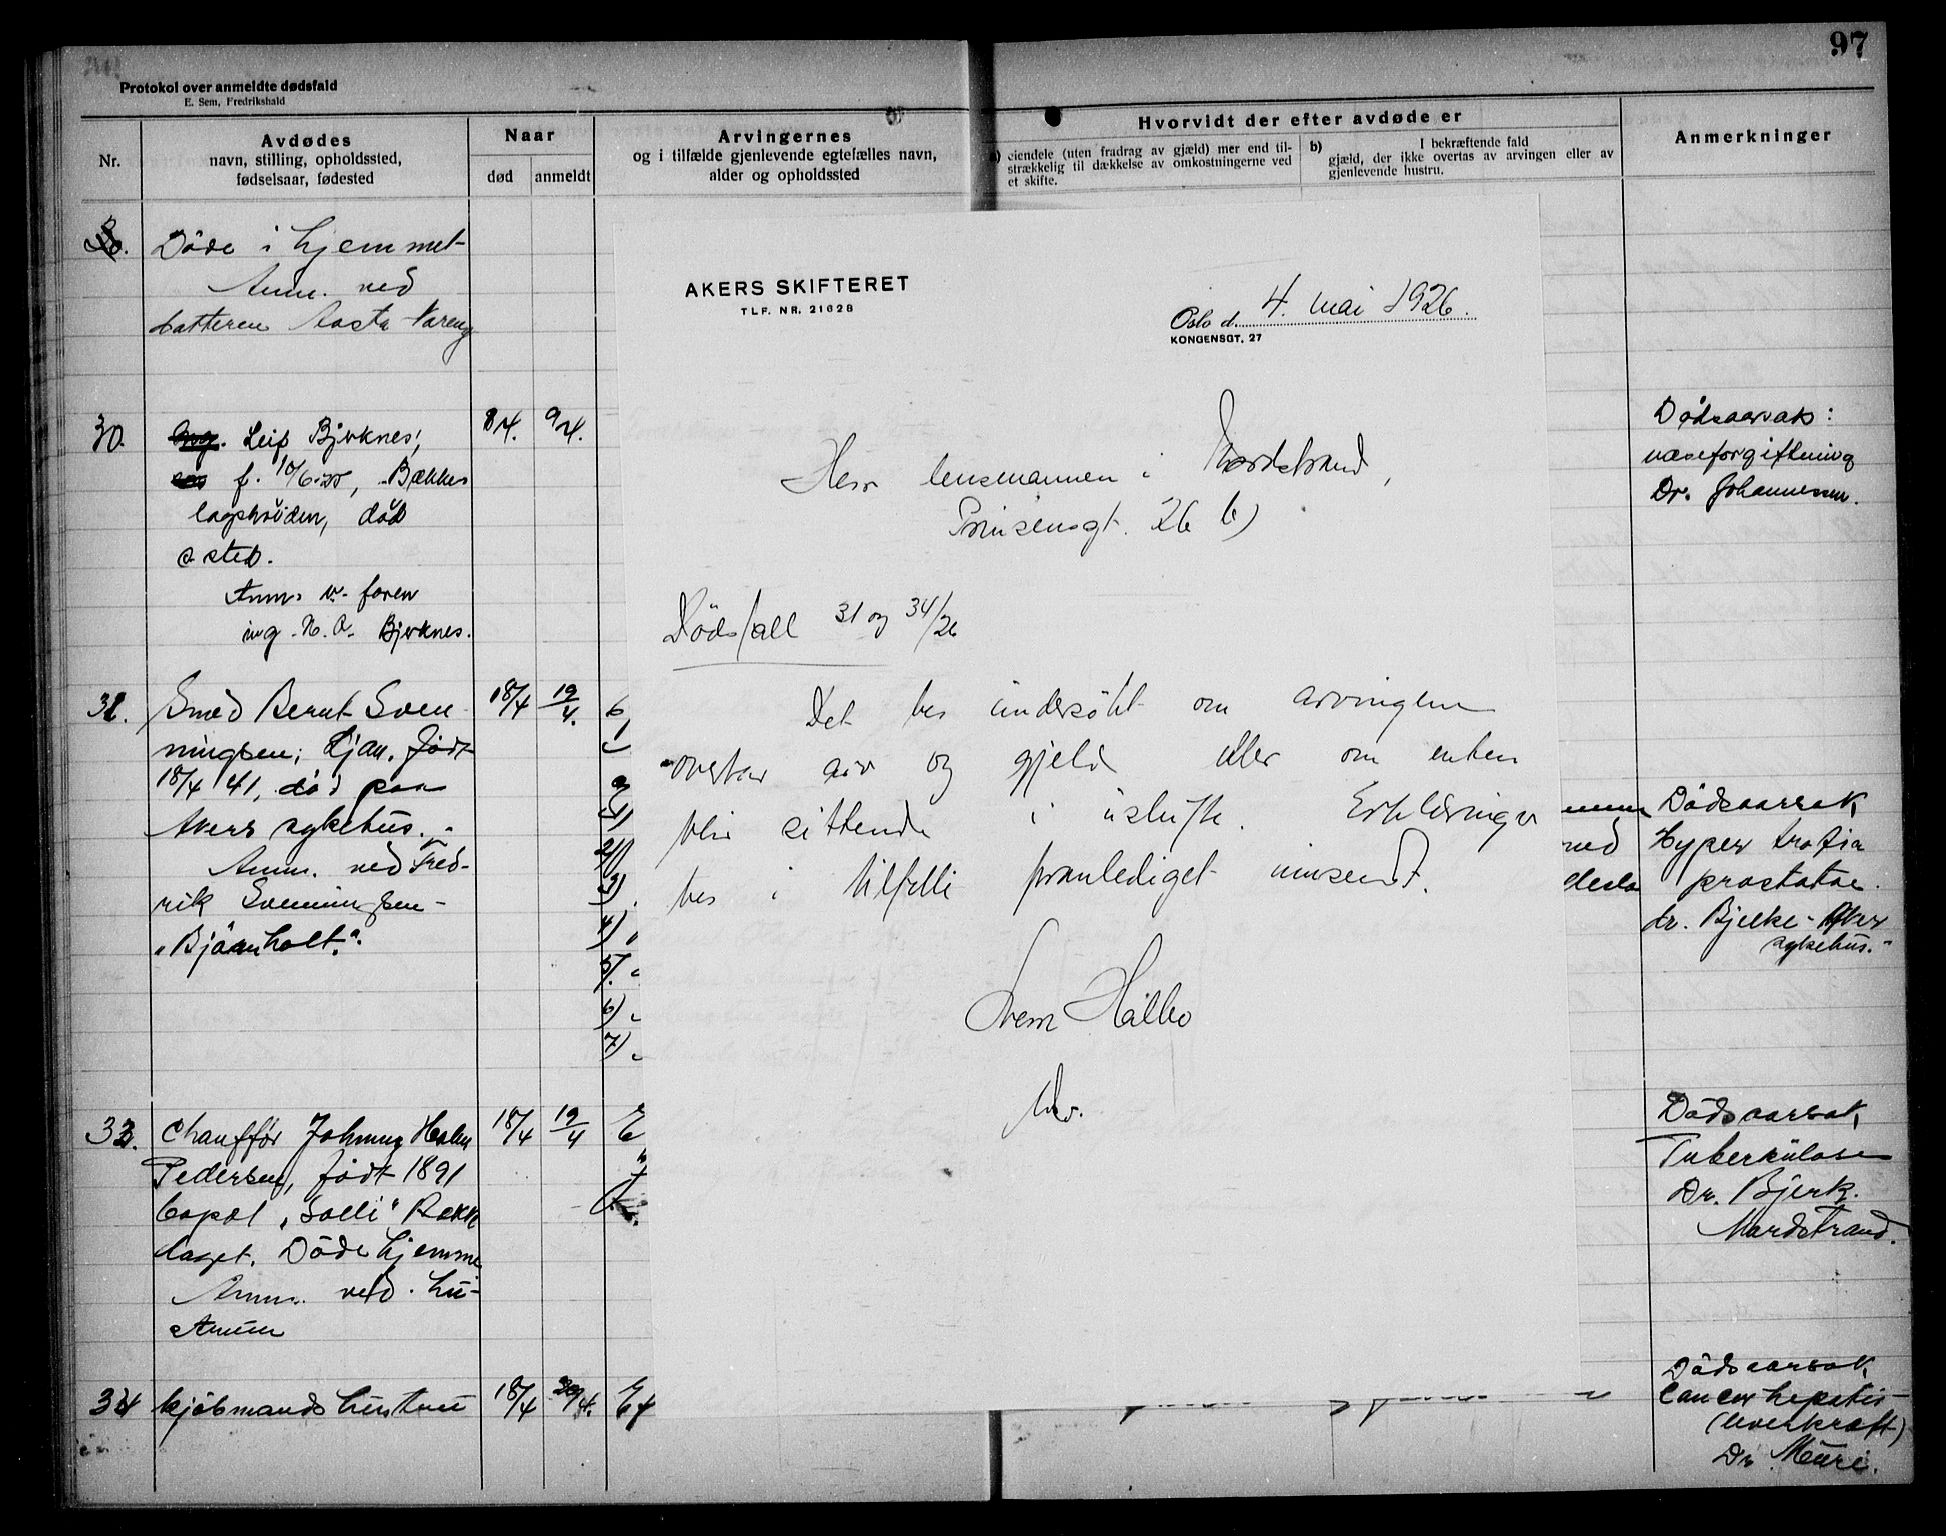 97
Protokol over anmeldte dødsfald
E. Sem, Fredrikshald
Nr.
Avdødes
navn, stilling, opholdssted,
fødselsaar, fødested
Naar
død
anmeldt
Arvingernes
og i tilfælde gjenlevende egtefælles navn,
alder og opholdssted
Hvorvidt der efter avdøde er
eiendele (uten fradrag av gjæld) mer end til-
strækkelig til dækkelse av omkostningerne ved
et skifte.
b)
I bekræftende fald
gjæld, der ikke overtas av arvingen eller av
gjenlevende hustru.
Anmerkninger
Döde i hjemmet
Anm. ved
datteren Aasta
30.
Leif Bjerknes,
8/4.
9/4.
f. 10/6
Bækkes
lagshöiden, död
s sted.
Anm. v. faren
ing. N. A. Bjerknes.
Dødsaarsak:
Dr. Johannesen.
31.
Smed Bernt Sven
18/4
19/4.
ningsen, Ljan, födt
18/4 41, död paa
Akers sykehus.
Anm. ved Fred-
rik Svenningsen
1)
2)
3)
4)
5)
6)
7)
Dödsaarsak,
Hyper trofia
prostatae.
dr. Bjelke - Aker
sykehus.
Chauffør Johnny
18/4
19/4
Pedersen, født 1891
"Solli" Bækk
laget. Döde hjemme
Anm. ved hu-
struen
Dödsaarsak,
Tuberkulose
Dr. Bjerk.
Nordstrand.
34
kjöbmands hustru
18/4
Dödsaarsak,
Cancer hepatis
(leverkræft)
AKERS SKIFTERET
TLF. NR. 21628
Oslo d. 4. mai 1926.
KONGENSGT. 27
Herr lensmannen i Nordstrand,
Prinsensgt. 26 b)
Dødsfall 31 og 34/26
Det bes undersøkt om arvingene
overtar arv og gjeld eller om enken
blir sittende i uskifte. Erklæringer
bes i tilfelle foranlediget innsendt.